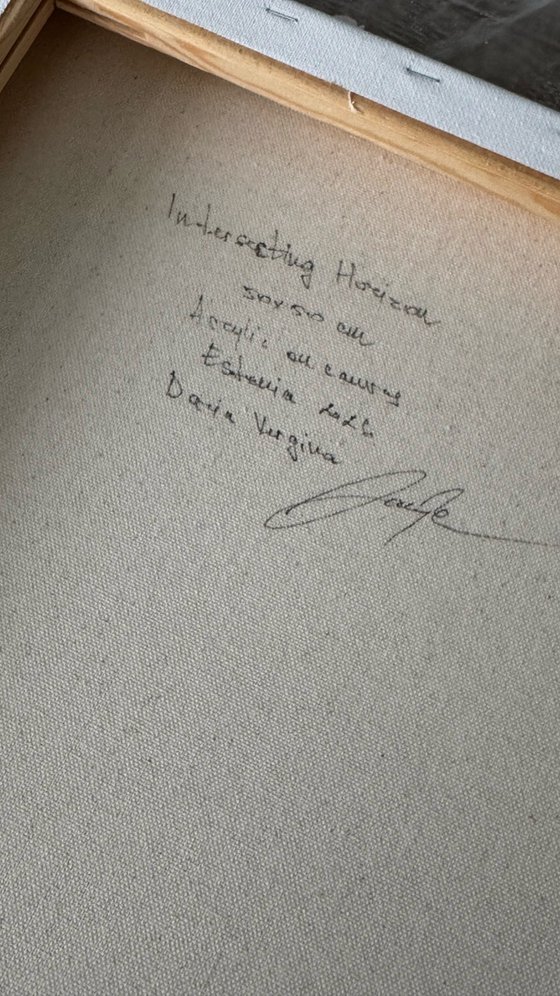 Intersecting Horizon
50x50 cm
Acrylic on canvas
Estonia
Daria Vergina